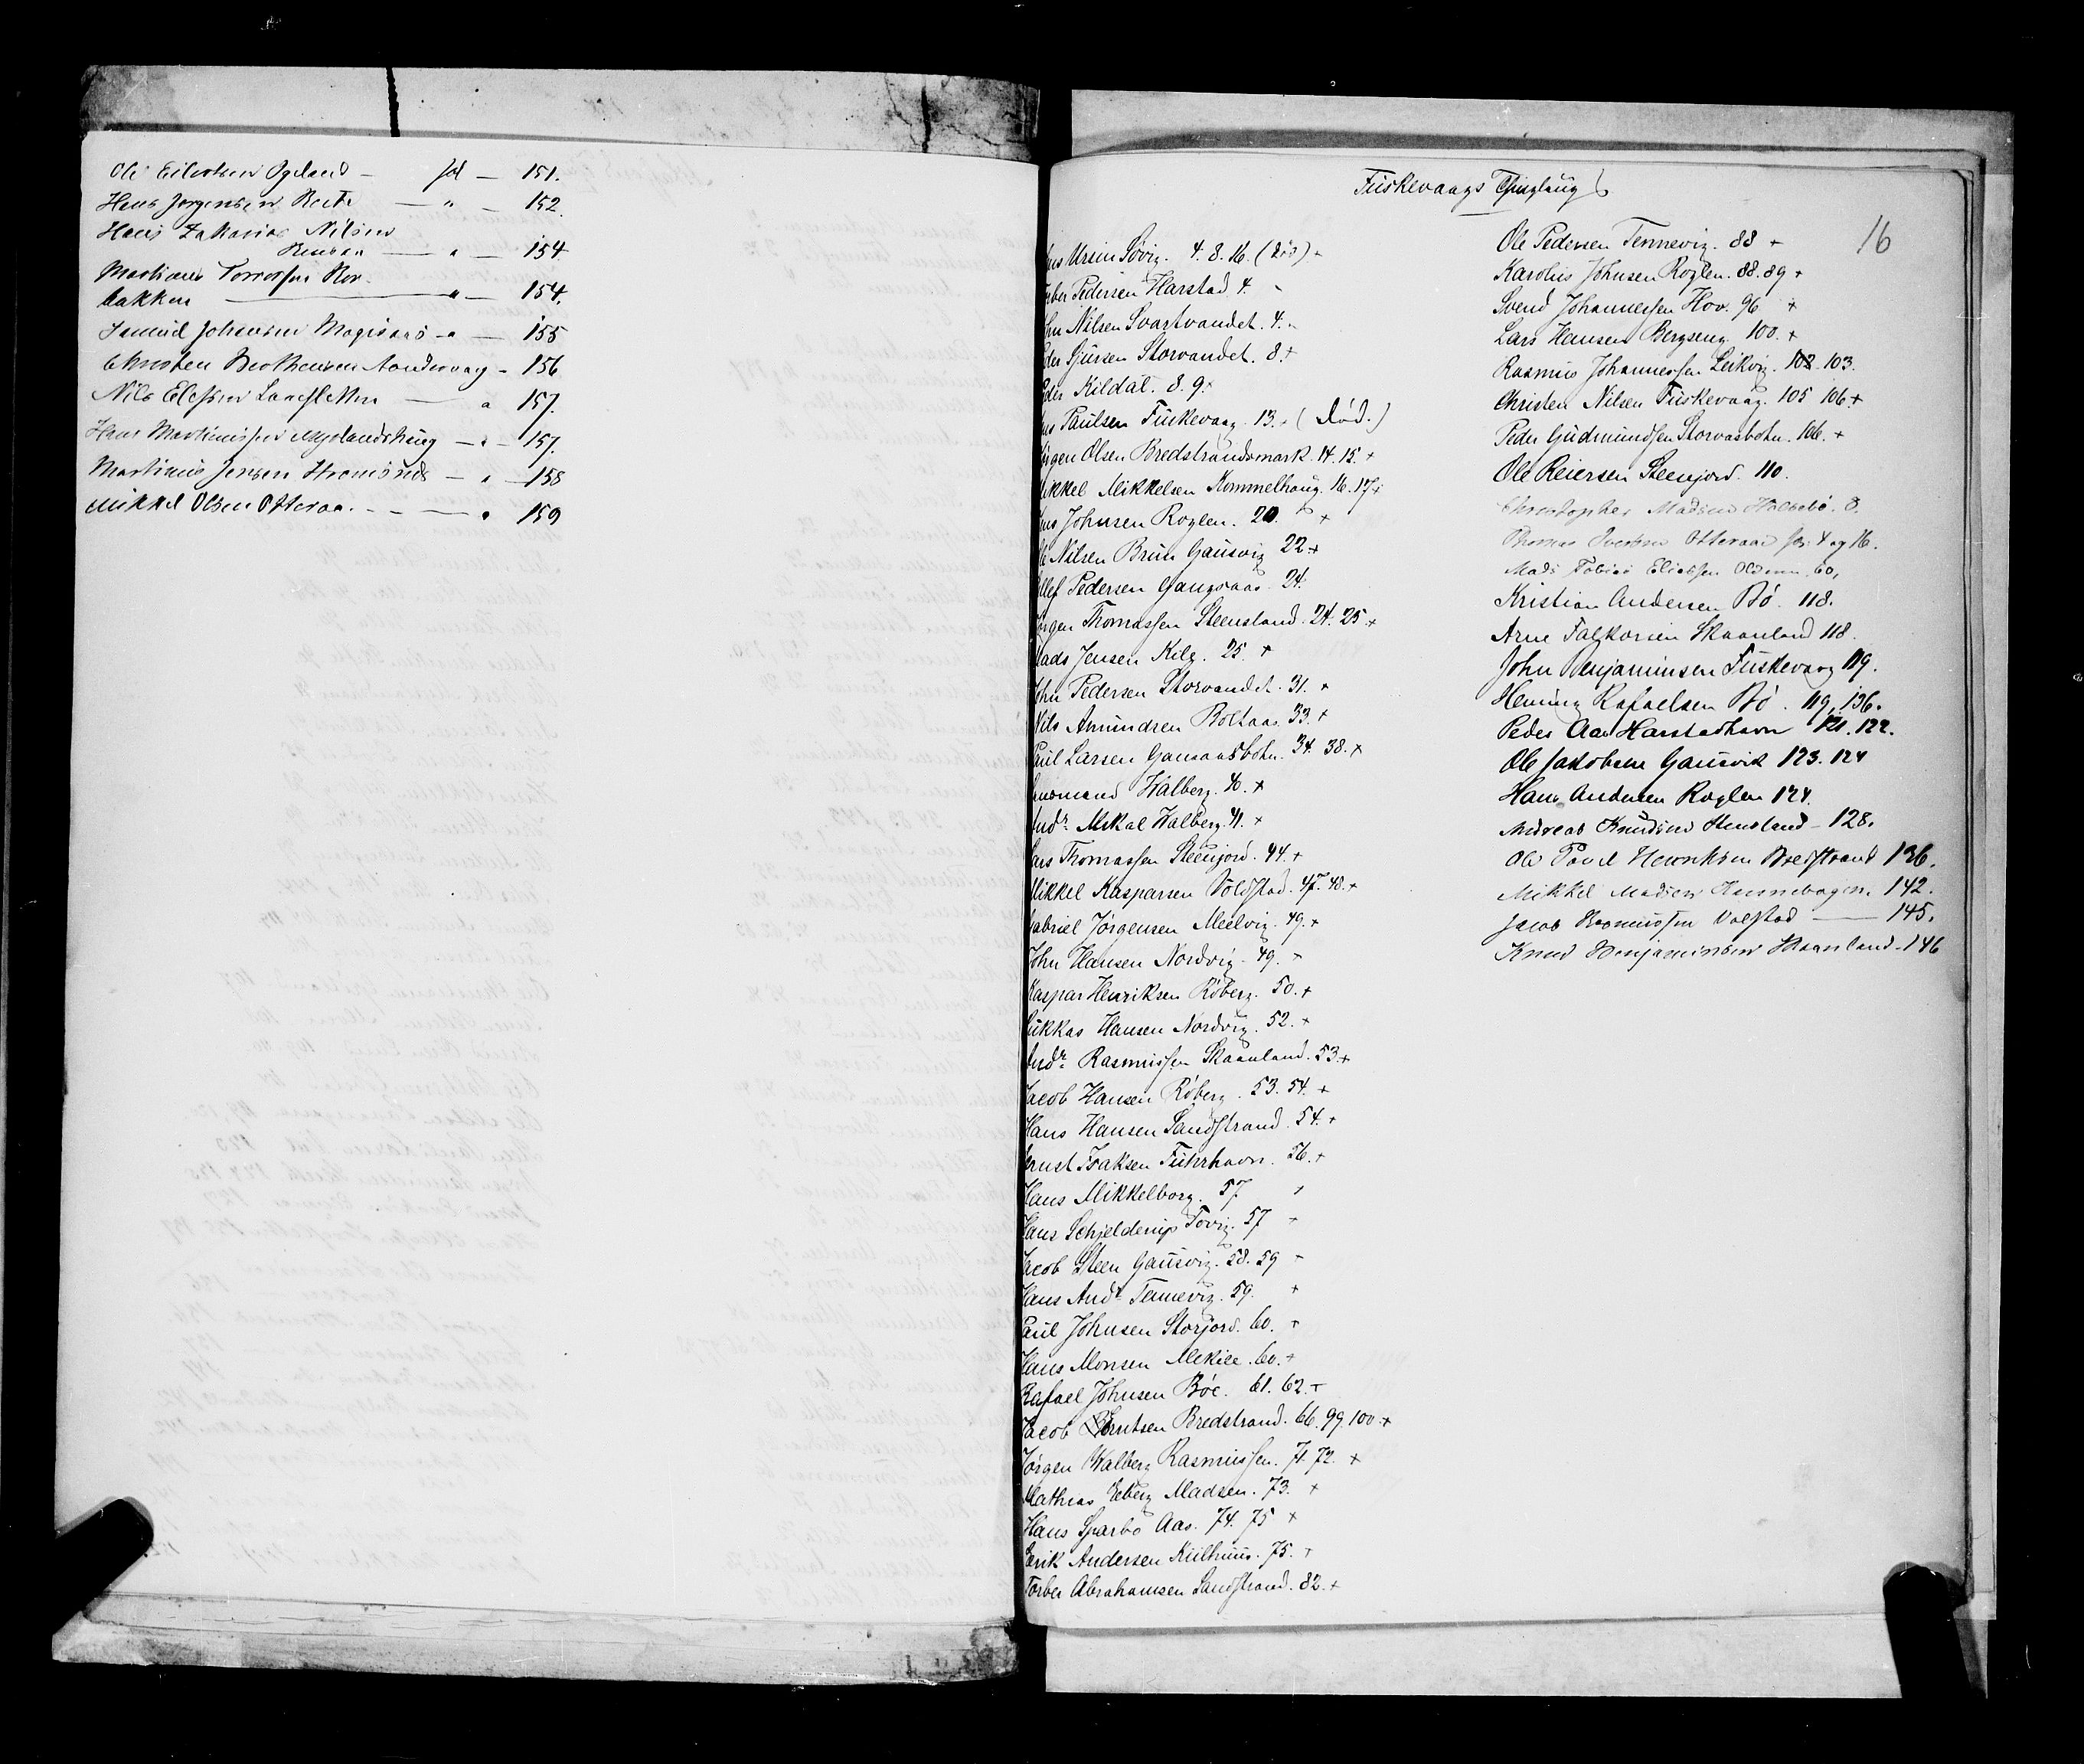 Ole Eilertsen Opeland - fol - 151.
Hans Jørgensen Berte - " - 152.
Hans Zakarias Nilsen
- " - 154
Martinus
bakken - " - 154.
Samuel Johansen - " - 155
Christen Bertheusen Sondervaag - 156
Nils - " 157.
Hans Martinussen - " - 157.
Martinus Jensen - " - 158
Mikkel Olsen Otteraa. - - " 159
Fuskevaags Thinglaug
16
Ursin Søvig. 4. 8. 16. (død) +
Pedersen Harstad 4.
Nilsen Svartvandet. 4.
Sjursen Storvandet. 8. +
Kildal. 8. 9. +
Paulsen Fuskevaag. 13. + (død.)
Jørgen Olsen Bredstrandsmark. 14. 15. +
Mikkel Mikkelsen Kommelhaug. 16. 17 +
Johnsen Roglen. 20. +
Nilsen Brun Gausvig 22 +
Pedersen Gangsaas. 24.
Jørgen Thomassen Steensland. 24. 25. +
Mads Jensen Kilg. 25. +
John Pedersen Storvandet. 31. +
Nils Amundsen Boltaas. 33. +
Paul Larsen Gansaasbotn. 34. 38. +
Halberg. 40. +
Andr. Mikal Halberg. 41. +
Lars Thomassen Steenjord. 44. +
Mikkel Kaspersen Voldstad. 47. 48. +
Gabriel Jørgensen Melvig. 49. +
John Hansen Nordvig. 49. +
Kaspar Henriksen Røberg. 50. +
Lukkas Hansen Nordvig. 52. +
Andr. Rasmussen Skaanland. 53. +
Jacob Hansen Røberg. 53. 54. +
Hans Hansen Sandstrand. 54. +
Isaksen Fuhrhavn. 56. +
Hans Mikkelborg. 57
Hans Schjelderup Tovig. 57 +
Jacob Steen Gausvig. 58. 59 +
Hans Andr. Tennevig. 59. +
Paul Johnsen Storjord. 60. +
Hans Monsen 60. +
Rafael Johnsen Bøe. 61. 62. +
Jacob Berntsen Bredstrand. 66. 99. 100. +
Jørgen Walberg Rasmussen. 71. 72. +
Mathias Eberg Madsen. 73. +
Hans Sparbo Aas. 74. 75 +
Erik Andersen Kulhuus. 75. +
Torber Abrahamsen Sandstrand. 82. +
Ole Pedersen Tennevig. 88 +
Karolus Johnsen Roglen. 88. 89 +
Svend Johannessen Hov. 96 +
Lars Hansen Bergseng. 100. +
Rasmus Johannessen Leikvig. 102. 103.
Christen Nilsen Fuskevaag. 105 106 +
Peder Gudmundsen Storvasbotn. 106. +
Ole Reiersen Steenjord. 110.
Christopher Madsen 8.
Thomas Iversen Otteraa fol. 4 og 16.
Mads Tobias Eliassen 60,
Kristian Andersen Bø. 118.
Arne Falkorsen Skaanland 118.
John Benjaminsen Fuskevaag 119.
Heming Rafaelsen Bø. 119, 136.
Peder Aas Harstadhavn 121. 122.
Ole Jakobsen Gausvik 123. 124
Hans Andersen Roglen 124.
Andreas Knudsen Stensland - 128.
Ole Povel Henriksen Bredstrand 136.
Mikkel Madsen Hennebogen. 142.
Jacob Rasmussen Volstad - 145.
Knud Benjaminsen Skaanland - 146